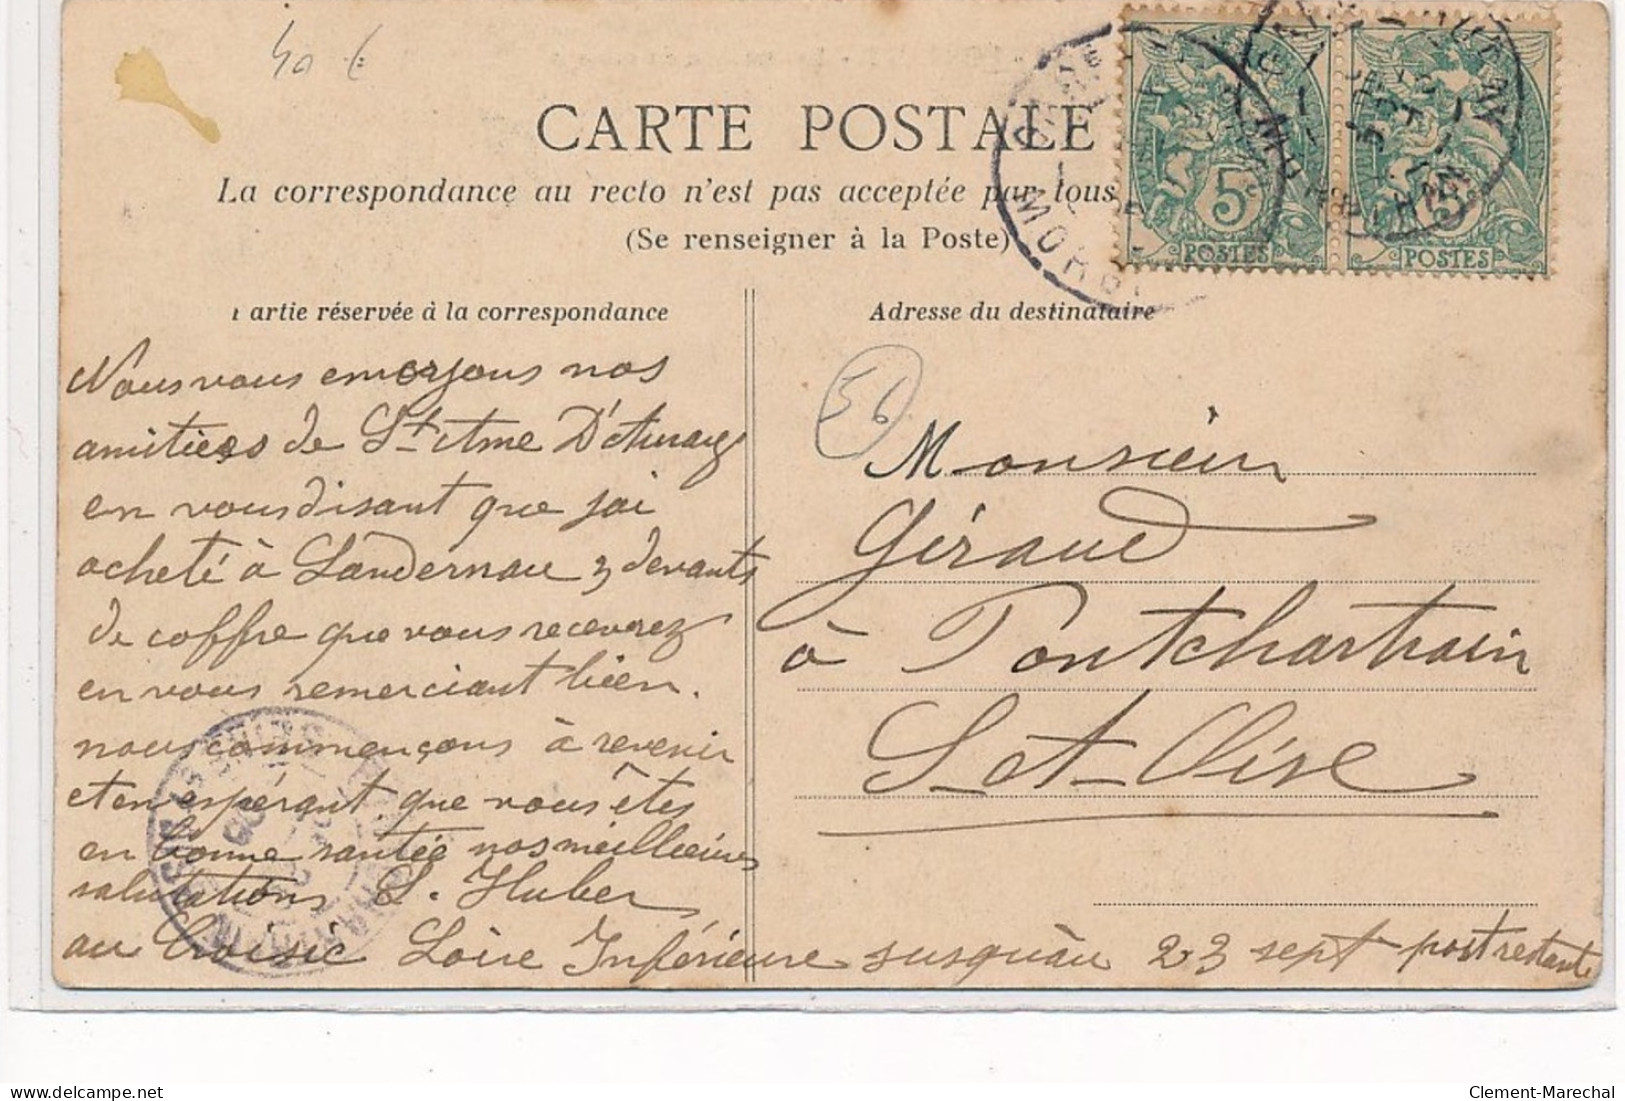 40 €
CARTE POSTALE
La correspondance au recto n'est pas acceptée par tous
(Se renseigner à la Poste)
artie réservée à la correspondance
Nous vous envoyons nos
amitiées de St Anne D'Auray
en vous disant que jai
acheté à Landernau 3 devants
de coffre que vous recevrez
en vous remerciant bien.
nous commençons à revenir
et en espérant que vous êtes
en bonne santée nos meillieures
salutations L. Huber
au Croisic Loire Inférieure jusquàu 23 sept post restante
Adresse du destinataire
56
Monsieur
Géraud
à Pontchartrain
S. et-Oise
5
POSTES
5
POSTES
MORBIHAN
Clement-Marechal
www.delcampe.net